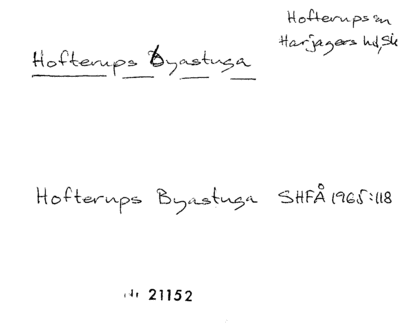 Hofterups sn
Harjagers hd, Sk
Hofterups Byastuga
Hofterups Byastuga SHFÅ 1965:118
Nr 21152